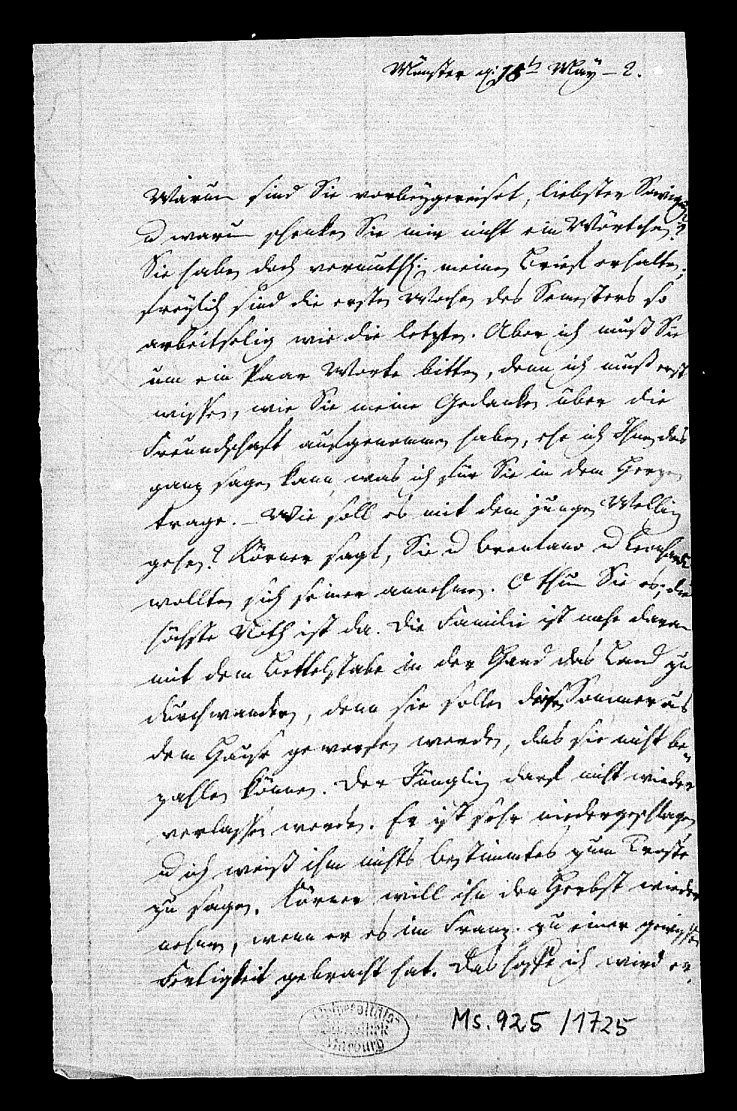 Münster d. 18t May – 2.
Warum sind Sie vorbeygereiset, liebster Savigny
u warum schenken Sie mir nicht ein Wörtchen?
Sie haben doch vermuthl. meinen Brief erhalten,
freylich sind die ersten Wochen des Semesters so
arbeitselig wie die letzten. Aber ich muß Sie
um ein Paar Worte bitten, denn ich muß erst
wissen, wie Sie meine Gedanken über die
Freundschaft aufgenommen haben, ehe ich Ihnen das
ganz sagen kann, was ich für Sie in dem Herzen
trage. – Wie soll es mit dem jungen
gehen? Körner sagt, Sie u Brentano u
wollten sich seiner annehmen. O thun Sie es, die
höchste Noth ist da. Die Familie ist nahe daran
mit dem Bettelstabe in der Hand das Land zu
durchwandern, denn sie sollen diesen Sommer aus
dem Hause geworfen werden, das sie nicht be-
zahlen können. Der Jüngling darf nicht wieder
verlassen werden. Er ist sehr niedergeschlagen
u ich weiß ihm nichts bestimmtes zum Troste
zu sagen. Körner will ihn den Herbst wieder
nehmen, wenn er es im Franz. zu einer gewissen
Fertigkeit gebracht hat. Das hoffe ich wird er.
Universitäts
Bibliothek
Marburg
Ms. 925 / 1725